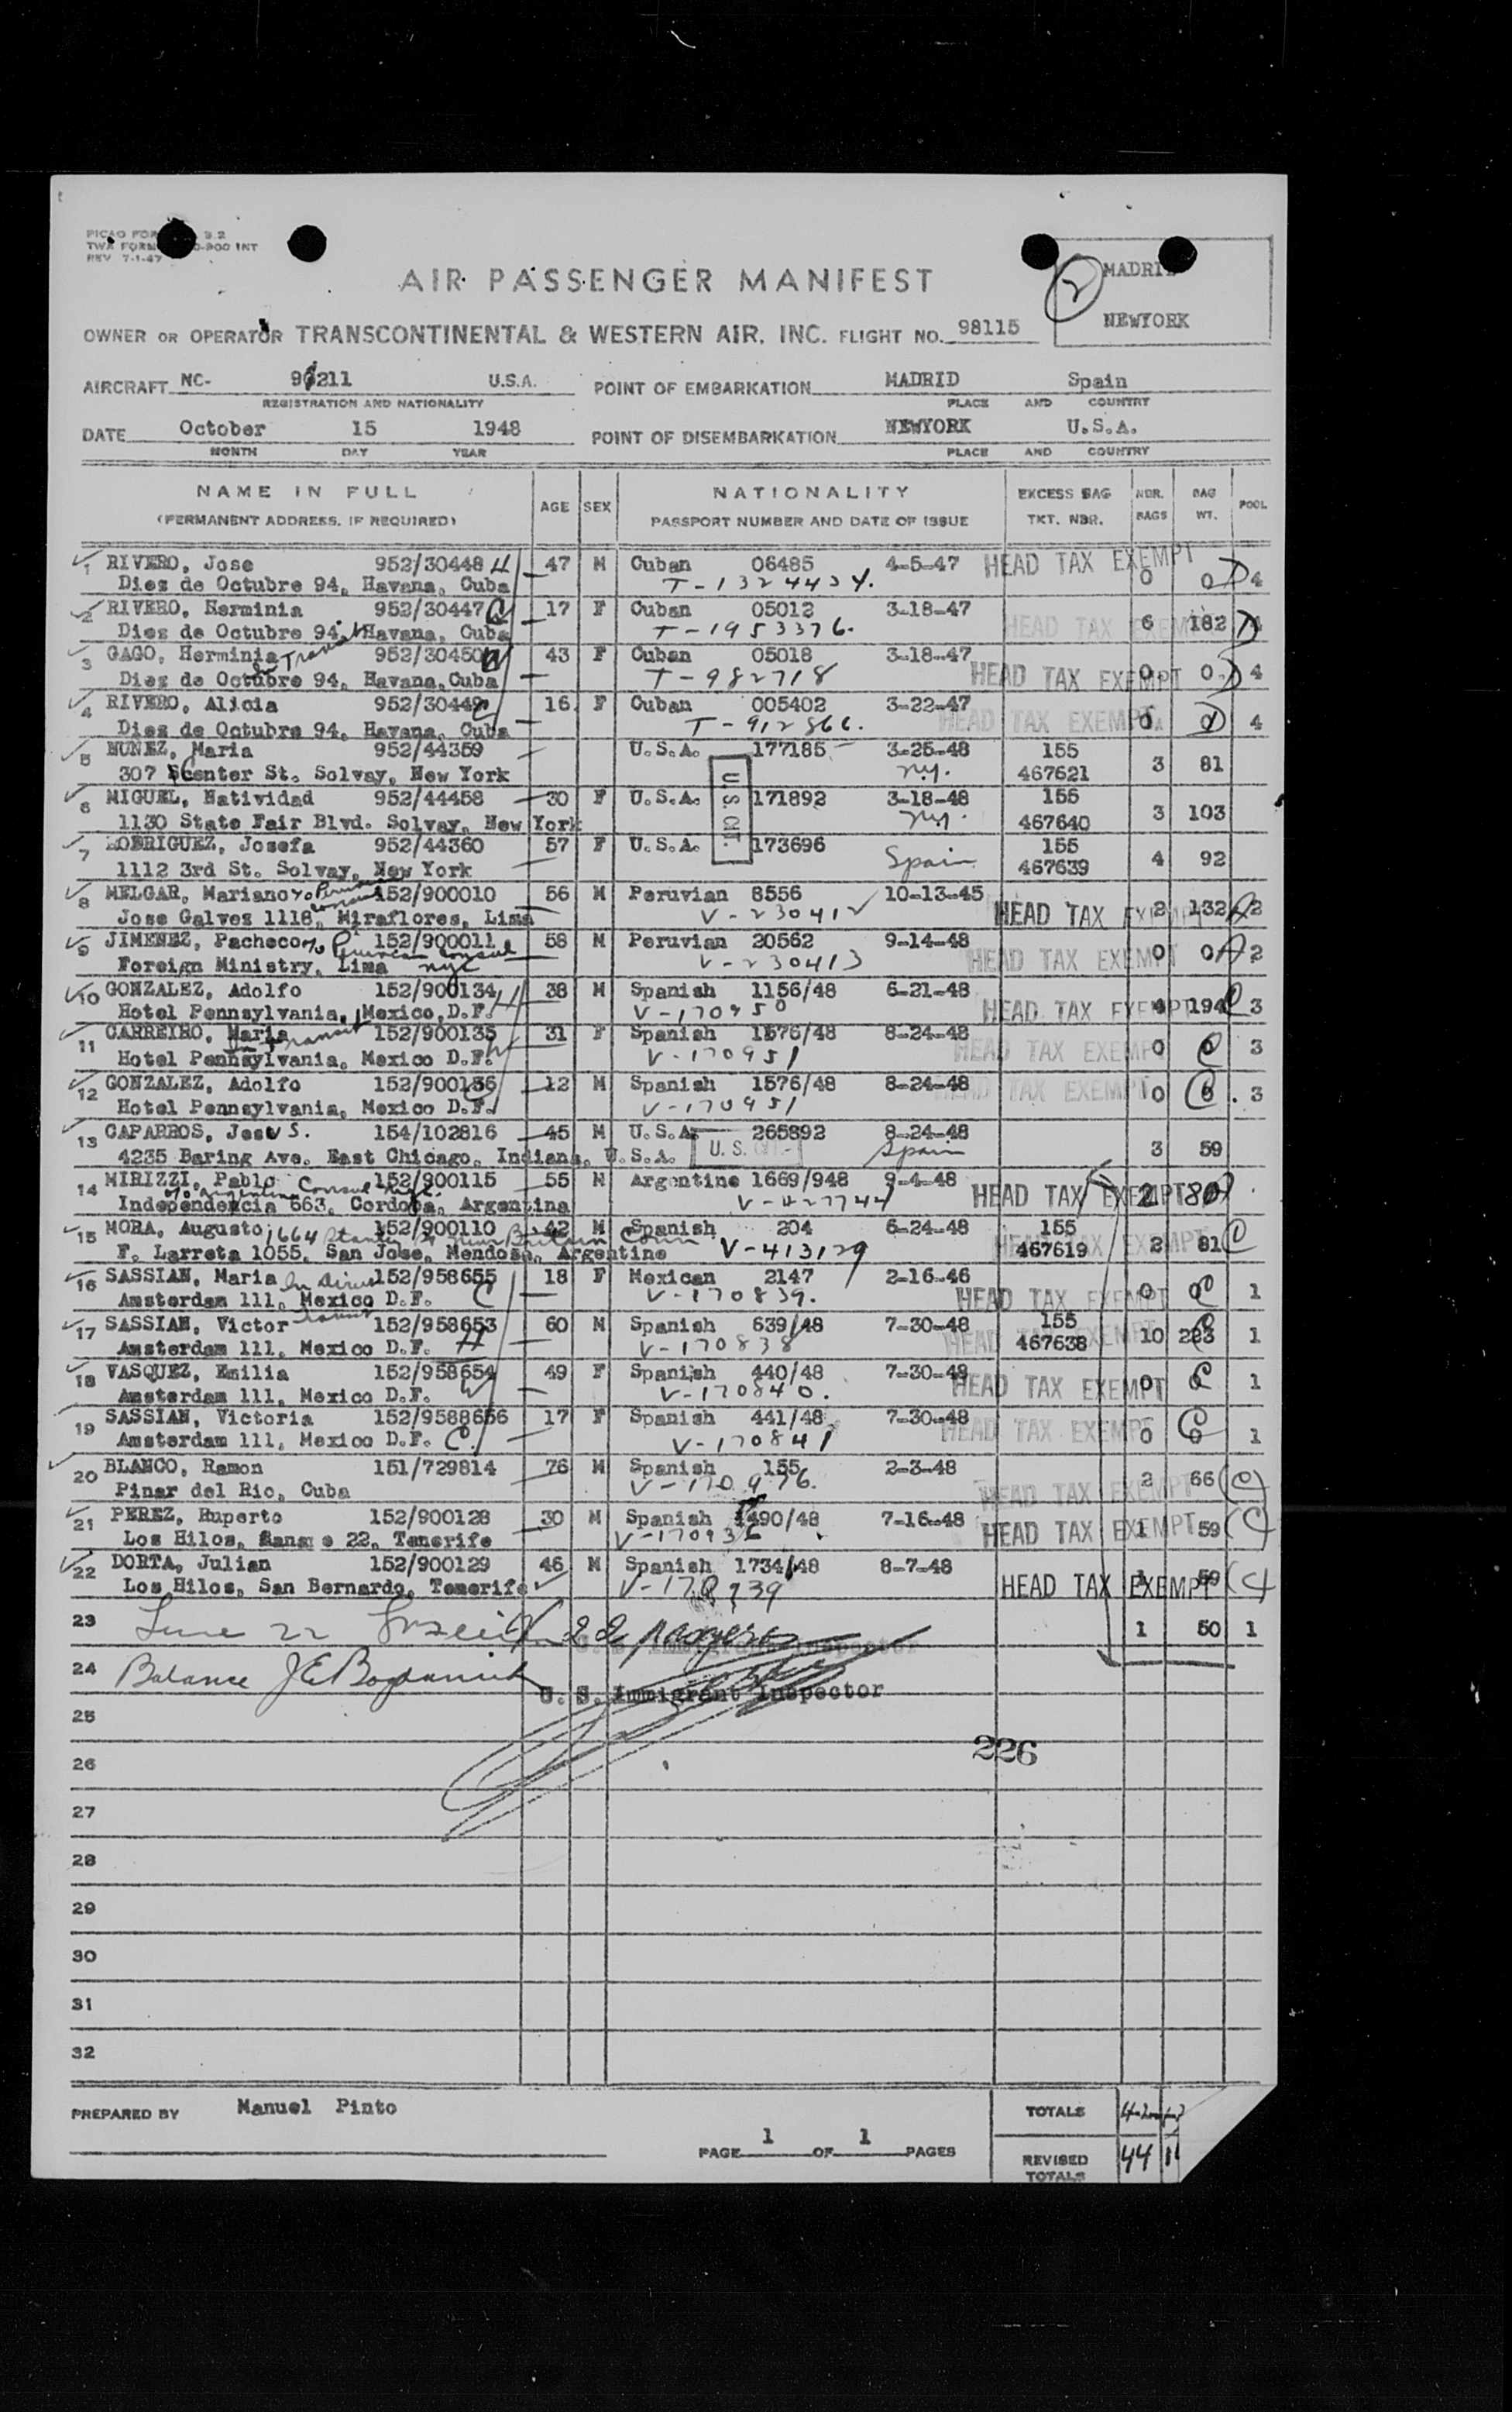 PICAO FOR 9.2
TWA FORM 0-900 INT
REV 7-1-47
AIR PASSENGER MANIFEST
2 MADRI
NEWYORK
OWNER OR OPERATOR TRANSCONTINENTAL & WESTERN AIR, INC. FLIGHT NO. 98115
AIRCRAFT NC- 211 U.S.A. POINT OF EMBARKATION MADRID Spain
REGISTRATION AND NATIONALITY PLACE AND COUNTRY
DATE October 15 1948 POINT OF DISEMBARKATION NEWYORK U.S.A.
MONTH DAY YEAR PLACE AND COUNTRY
NAME IN FULL AGE SEX NATIONALITY EXCESS BAG NBR. BAG POOL
(PERMANENT ADDRESS, IF REQUIRED) PASSPORT NUMBER AND DATE OF ISSUE TKT. NBR. BAGS WT.
1 RIVERO, Jose 952/30448 H 47 M Cuban 06485 4-5-47 HEAD TAX EXEMPT 0 0 D 4
Diez de Octubre 94, Havana, Cuba T-1324434.
2 RIVERO, Herminia 952/30447 17 F Cuban 05012 3-18-47 HEAD TAX EXEMPT 6 182 D
Diez de Octubre 94, Havana, Cuba T-1953376.
3 GAGO, Herminia 952/30450 W 43 F Cuban 05018 3-18-47 HEAD TAX EXEMPT 0 0 D 4
Diez de Octubre 94, Havana, Cuba T-982718
4 RIVERO, Alicia 952/30449 16 F Cuban 005402 3-22-47 HEAD TAX EXEMPT 0 0 4
Diez de Octubre 94, Havana, Cuba T-912866.
5 NUNEZ, Maria 952/44359 U.S.A. 177185 3-25-48 155 3 81
307 Center St. Solvay, New York N.Y. 467621
6 MIGUEL, Natividad 952/44458 30 F U.S.A. U.S. CIT. 171892 3-18-48 155 3 103
1130 State Fair Blvd. Solvay, New York N.Y. 467640
7 RODRIGUEZ, Josefa 952/44360 57 F U.S.A. 173696 155 4 92
1112 3rd St. Solvay, New York Spain 467639
8 MELGAR, Mariano 152/900010 56 M Peruvian 8556 10-13-45 HEAD TAX EXEMPT 2 132 A 2
Jose Galvez 1118, Miraflores, Lima V-230412
9 JIMENEZ, Pacheco c/o Peruvian Consul 152/900011 58 M Peruvian 20562 9-14-48 HEAD TAX EXEMPT 0 0 A 2
Foreign Ministry, Lima nyc V-230413
10 GONZALEZ, Adolfo 152/900134 H 38 M Spanish 1156/48 6-21-48 HEAD TAX EXEMPT 4 194 C 3
Hotel Pennsylvania, Mexico, D.F. V-170950
11 CARREIRO, Maria 152/900135 31 F Spanish 1576/48 8-24-48 HEAD TAX EXEMPT 0 0 C 3
Hotel Pennsylvania, Mexico D.F. W In transit V-170951
12 GONZALEZ, Adolfo 152/900136 12 M Spanish 1576/48 8-24-48 HEAD TAX EXEMPT 0 0 C 3
Hotel Pennsylvania, Mexico D.F. V-170951
13 CAPARROS, Jesus S. 154/102816 45 M U.S.A. 265892 8-24-48 3 59
4235 Baring Ave. East Chicago, Indiana, U.S.A. U.S. CIT. Spain
14 MIRIZZI, Pablo 152/900115 55 M Argentine 1669/948 9-4-48 HEAD TAX EXEMPT 2 80
c/o Argentine Consul NYC.
Independencia 663, Cordoba, Argentina V-427744
15 MORA, Augusto 152/900110 42 M Spanish 204 6-24-48 155 HEAD TAX EXEMPT 2 81 C
1664 Stanley St New Britain Conn
F. Larreta 1055, San Jose, Mendosa, Argentine V-413129 467619
16 SASSIAN, Maria 152/958655 18 F Mexican 2147 2-16-46 HEAD TAX EXEMPT 0 0 C 1
Amsterdam 111, Mexico D.F. C V-170839.
17 SASSIAN, Victor 152/958653 60 M Spanish 639/48 7-30-48 155 HEAD TAX EXEMPT 10 223 C 1
Amsterdam 111, Mexico D.F. H V-170838 467638
18 VASQUEZ, Emilia 152/958654 49 F Spanish 440/48 7-30-48 HEAD TAX EXEMPT 0 0 C 1
Amsterdam 111, Mexico D.F. W V-170840.
19 SASSIAN, Victoria 152/9588656 17 F Spanish 441/48 7-30-48 HEAD TAX EXEMPT 0 0 C 1
Amsterdam 111, Mexico D.F. C. V-170841
20 BLANCO, Ramon 151/729814 76 M Spanish 155 2-3-48 HEAD TAX EXEMPT 2 66 (C)
Pinar del Rio, Cuba V-170976.
21 PEREZ, Ruperto 152/900128 30 M Spanish 1490/48 7-16-48 HEAD TAX EXEMPT 1 59 (C)
Los Hilos, 22, Tenerife V-170936
22 DORTA, Julian 152/900129 46 M Spanish 1734/48 8-7-48 HEAD TAX EXEMPT 59 (C)
Los Hilos, San Bernardo, Tenerife
23 Line 22 22 1 50 1
24 Balance U. S. Immigrant Inspector
25
226
26
27
28
29
30
31
32
PREPARED BY Manuel Pinto TOTALS
PAGE 1 OF 1 PAGES REVISED TOTALS 44